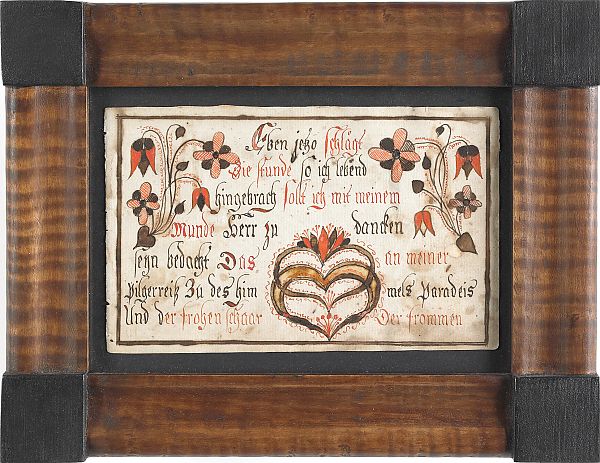 Eben jetzo schlägt
Die stunde so ich lebend
hingebrach solt ich mit meinem
Munde Herr zu dancken
seyn bedacht Das an meiner
Pilgerreiß Zu des him mels Paradeis
Und der frohen schaar Der frommen